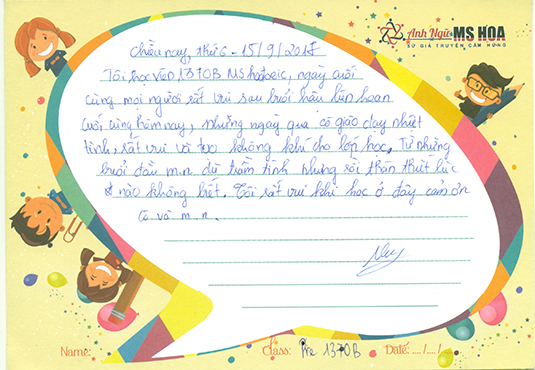 Anh Ngữ MS HOA
SỨ GIẢ TRUYỀN CẢM HỨNG
Chiều nay, thứ 6 - 15/9/2017
Tôi học viên 1370B Mshoatoeic, ngày cuối
cùng mọi người rất vui sau buổi liên hoan
cuối cùng hôm nay, những ngày qua cô giáo dạy nhiệt
tình, rất vui và tạo không khí cho lớp học. Từ những
buổi đầu m.n dự trầm tính nhưng rồi thân thiết lúc
nào không biết. Tôi rất vui khi học ở đây cảm ơn
cô và m.n.
Name:
Class: Pre 1370B Date: ..../..../....